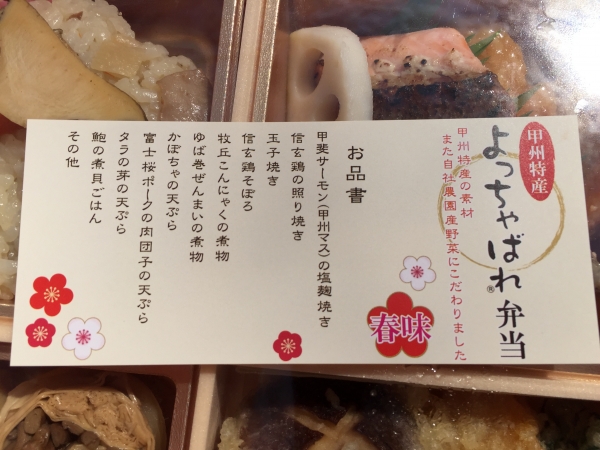 甲州特産
よっちゃばれ®弁当
甲州特産の素材
また自社農園産野菜にこだわりました
春味
お品書
甲斐サーモン(甲州マス)の塩麹焼き
信玄鶏の照り焼き
玉子焼き
信玄鶏そぼろ
牧丘こんにゃくの煮物
ゆば巻ぜんまいの煮物
かぼちゃの天ぷら
富士桜ポークの肉団子の天ぷら
タラの芽の天ぷら
鮑の煮貝ごはん
その他